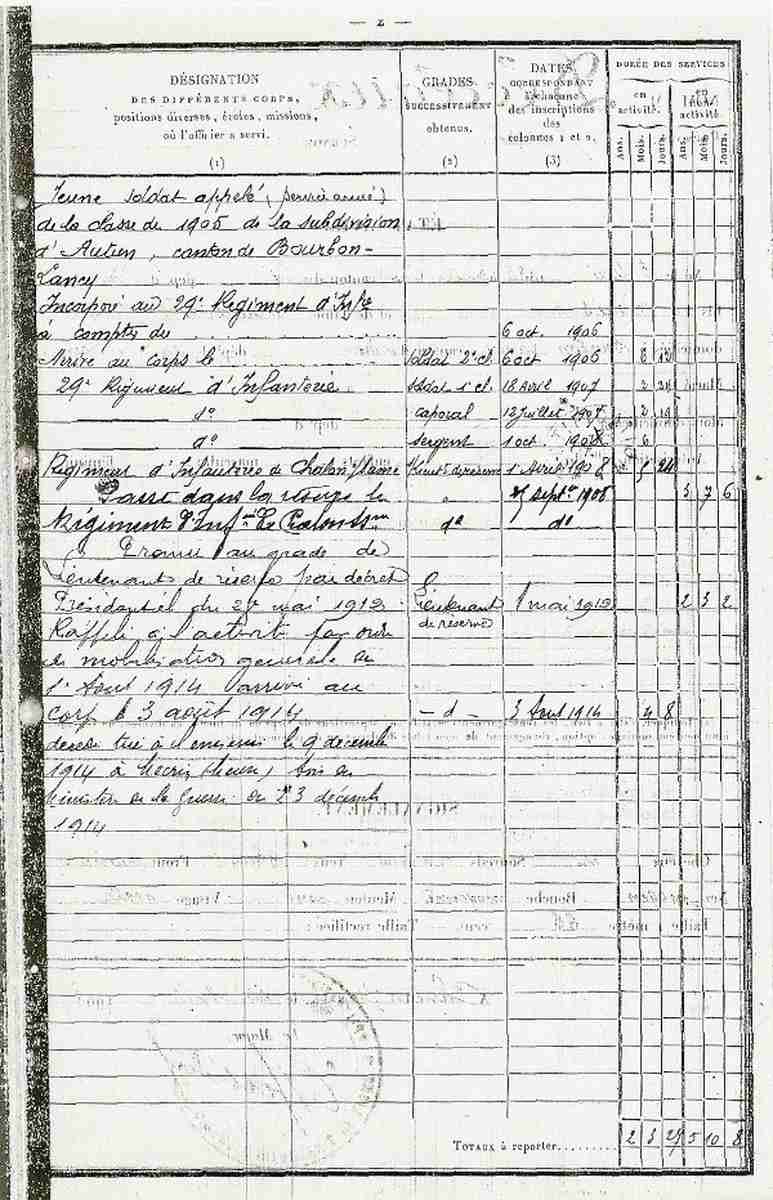 — 2 —
DÉSIGNATION
DES DIFFÉRENTS CORPS,
positions diverses, écoles, missions,
où l'officier a servi.
(1)
GRADES
SUCCESSIVEMENT
obtenus.
(2)
DATES
CORRESPONDANT
à chacune
des inscriptions
des
colonnes 1 et 2.
(3)
DURÉE DES SERVICES
en
activité.
en
activité.
Ans. Mois. Jours. Ans. Mois. Jours.
Jeune soldat appelé (service armé)
de la classe de 1905 de la subdivision
d'Autun, canton de Bourbon-
Lancy
Incorporé au 29e Régiment d'Infie
à compter du 6 oct. 1906
Arrivé au corps le soldat 2e cl. 6 oct 1906
29e Régiment d'Infanterie soldat 1e cl. 18 Avril 1907
do caporal 12 Juillet 1907
do sergent 1 oct 1907 6
Régiment d'Infanterie de Chalon s/Saône de réserve 1 Avril 1908 5 24
Passé dans la réserve le " 25 septre 1908 3 7 6
Régiment d'Inf do do
Promu au grade de
Lieutenant de réserve par décret
Présidentiel du mai 1912 Lieutenant de réserve 1 mai 1912 2 3 2
Rappelé à l'activité par ordre
de mobilisation générale du
1er Aout 1914 arrivé au
corps le 3 août 1914 — d — 3 Aout 1914 4 8
décédé tué à l'ennemi le 9 décembre
1914 à (Meuse) avis du
Ministre de la Guerre du 23 décembre
1914
TOTAUX à reporter......... 2 3 5 10 8